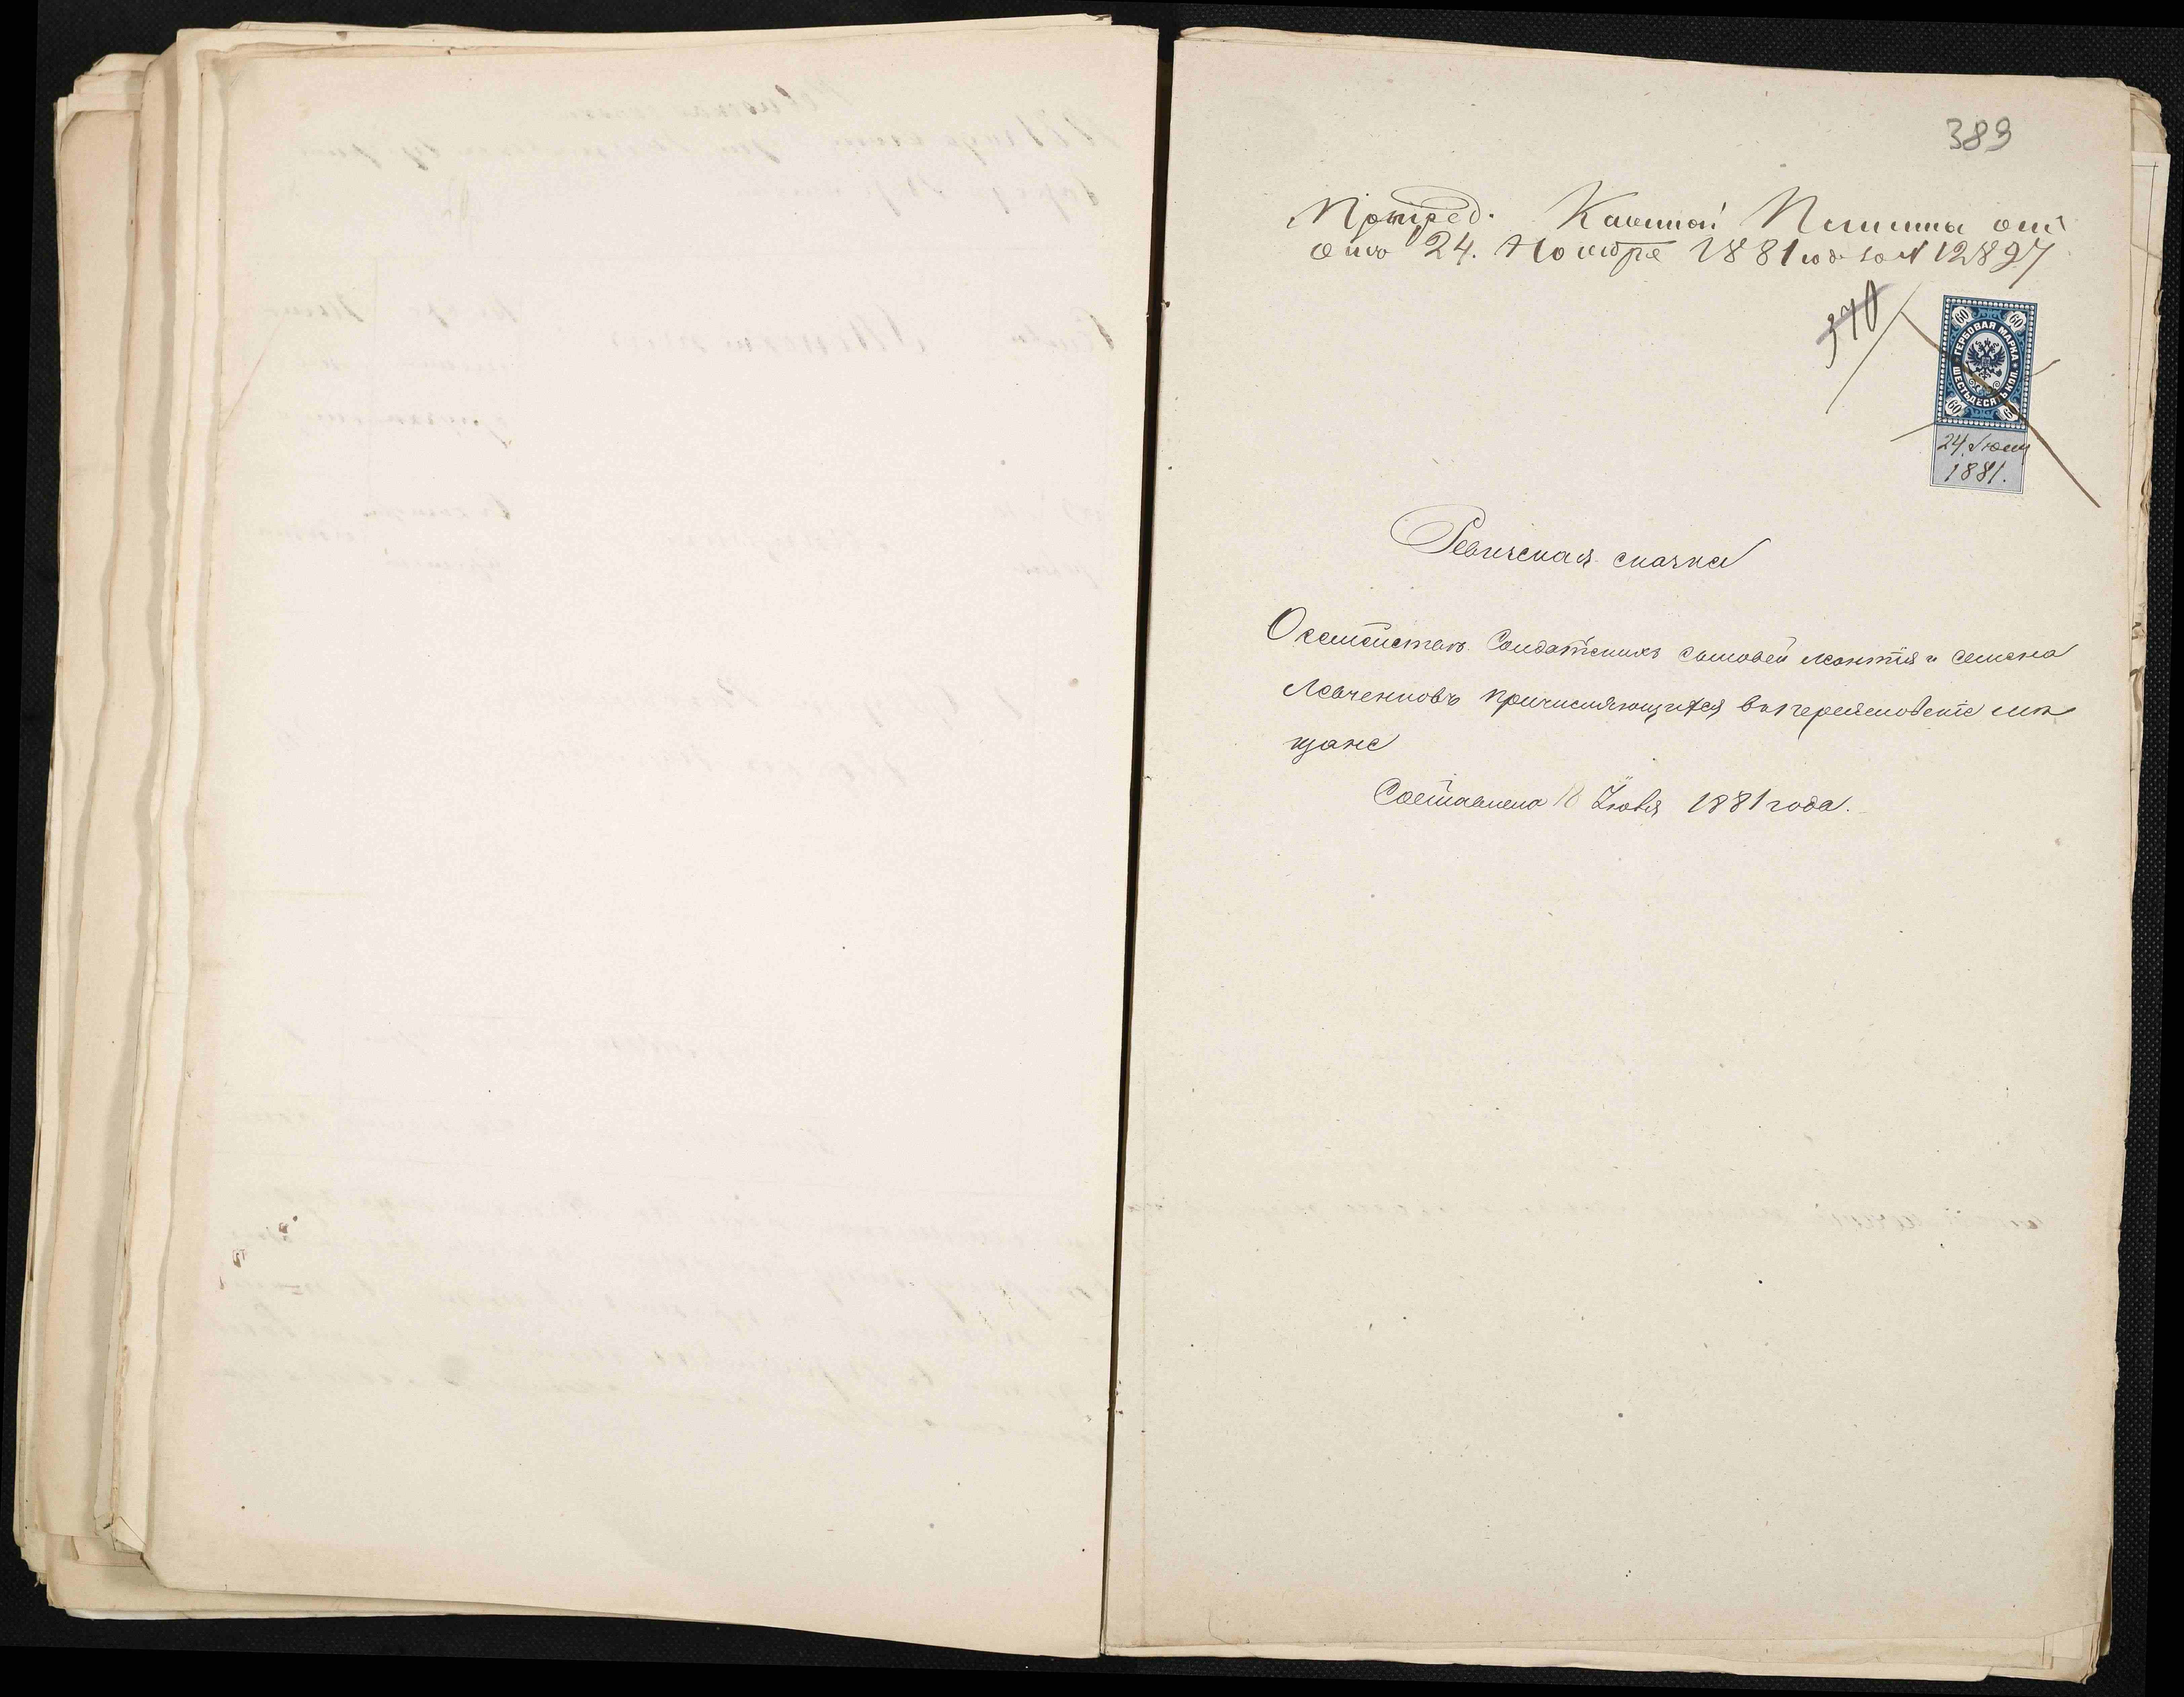 389
Предпред. Казенной Палаты отъ
отъ 24. Ноября 1881 года за № 12897
370
60 60
ГЕРБОВАЯ МАРКА
ШЕСТЬДЕСЯТЪ КОП.
60 60
24. Іюня
1881.
Ревизская сказка
О семействахъ Солдатскихъ сыновей Леонтія и Семена
Левченковъ причисляющихся въ переясловскіе мѣ
щане
Составлена 18 Іюня 1881 года.